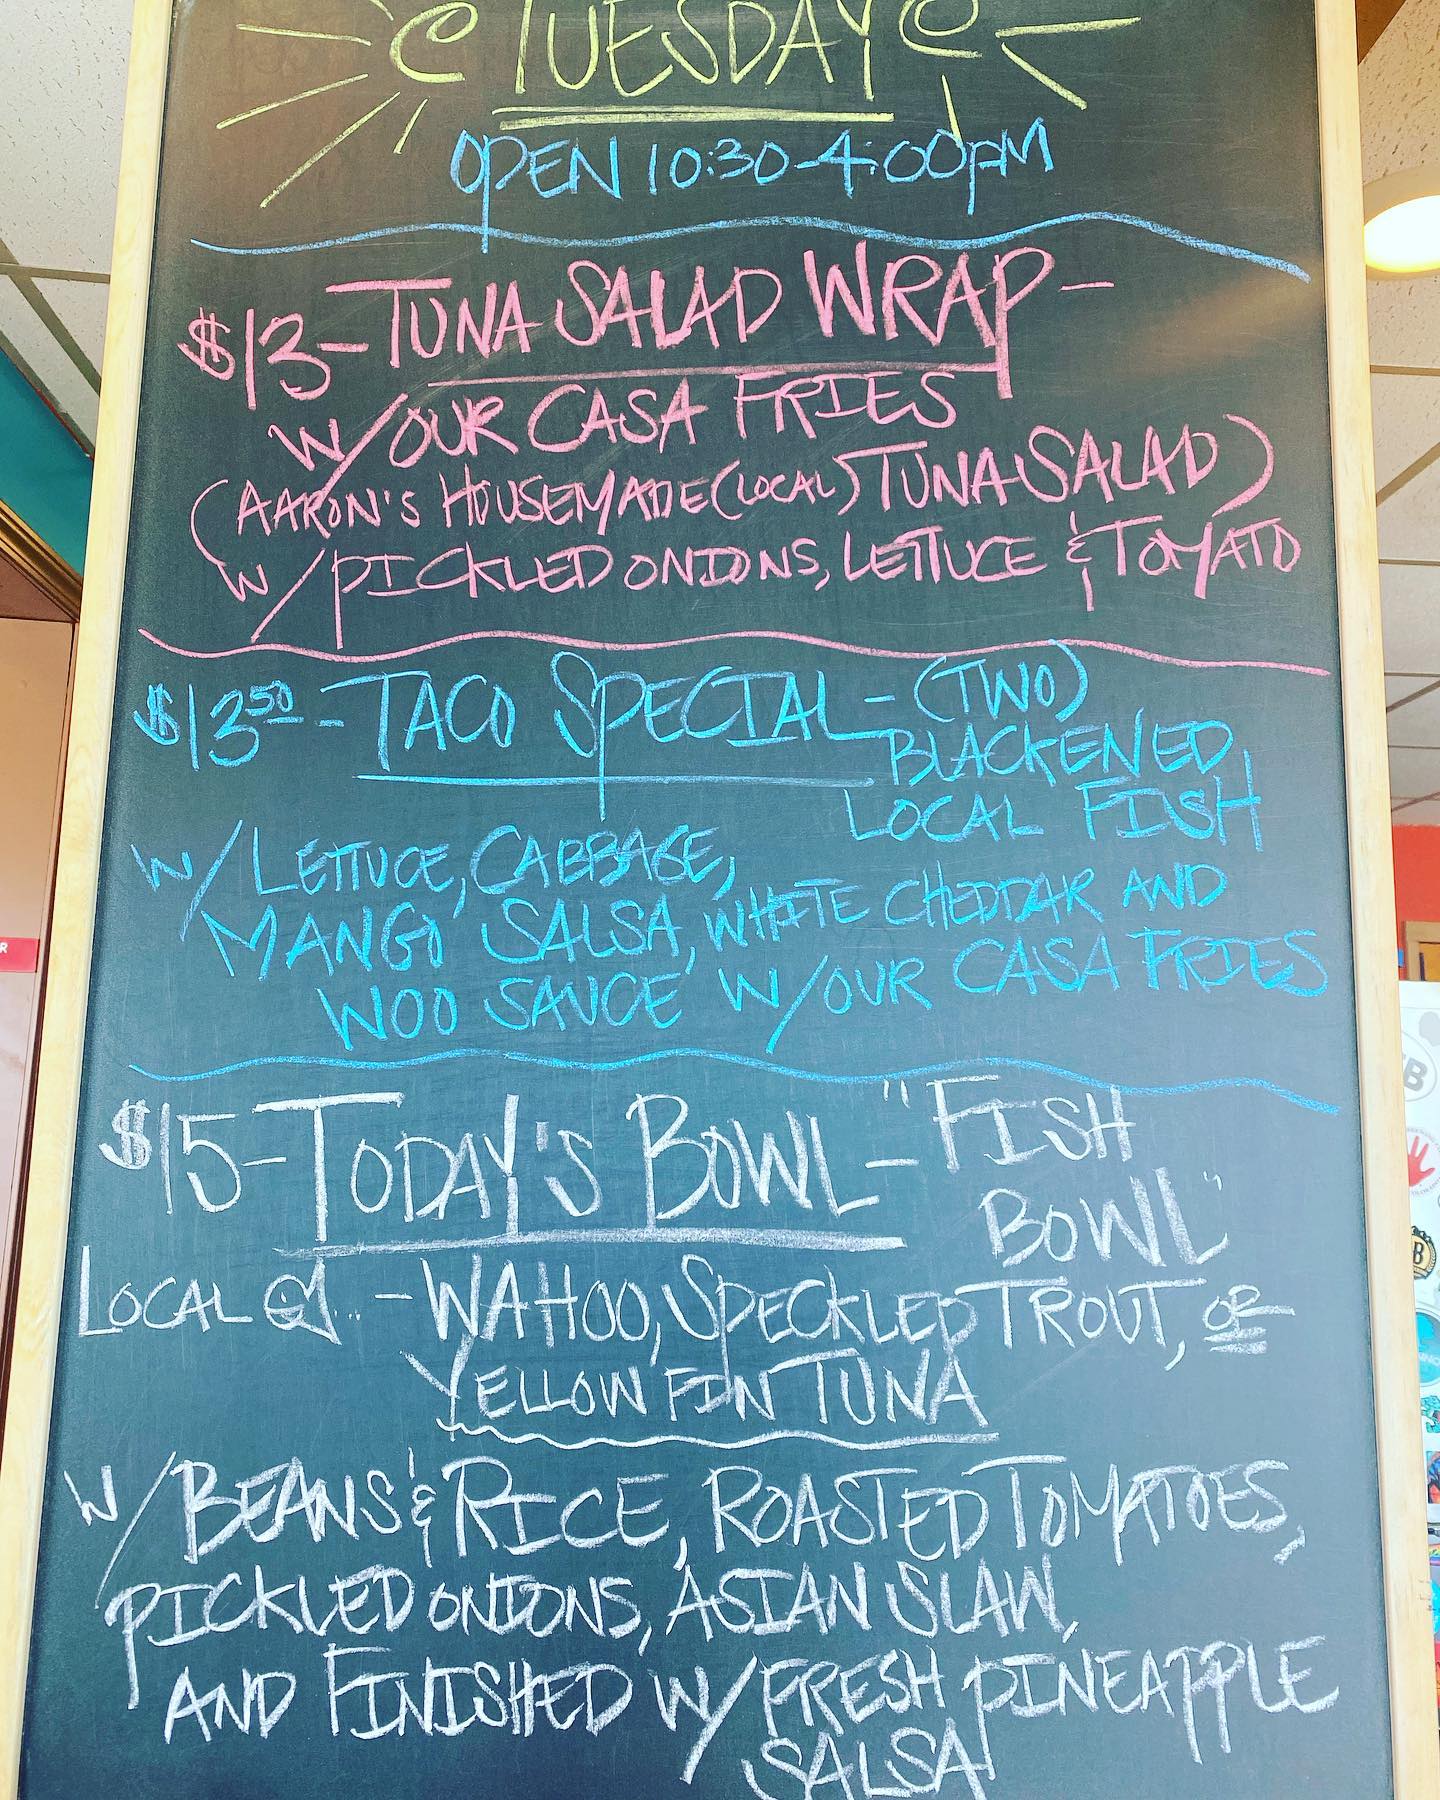 TUESDAY
OPEN 10:30-4:00PM
$13-TUNA SALAD WRAP-
W/OUR CASA FRIES
(AARON'S HOUSEMADE (LOCAL) TUNA SALAD)
W/PICKLED ONIONS, LETTUCE & TOMATO
$13 50 - TACO SPECIAL - (TWO)
BLACKENED
LOCAL FISH
W/ LETTUCE, CABBAGE,
MANGO SALSA, WHITE CHEDDAR AND
WOO SAUCE W/OUR CASA FRIES
$15-TODAY'S BOWL- "FISH
BOWL"
LOCAL - WAHOO, SPECKLED TROUT, OR
YELLOW FIN TUNA
W/BEANS & RICE, ROASTED TOMATOES,
PICKLED ONIONS, ASIAN SLAW,
AND FINISHED W/ FRESH PINEAPPLE
SALSA